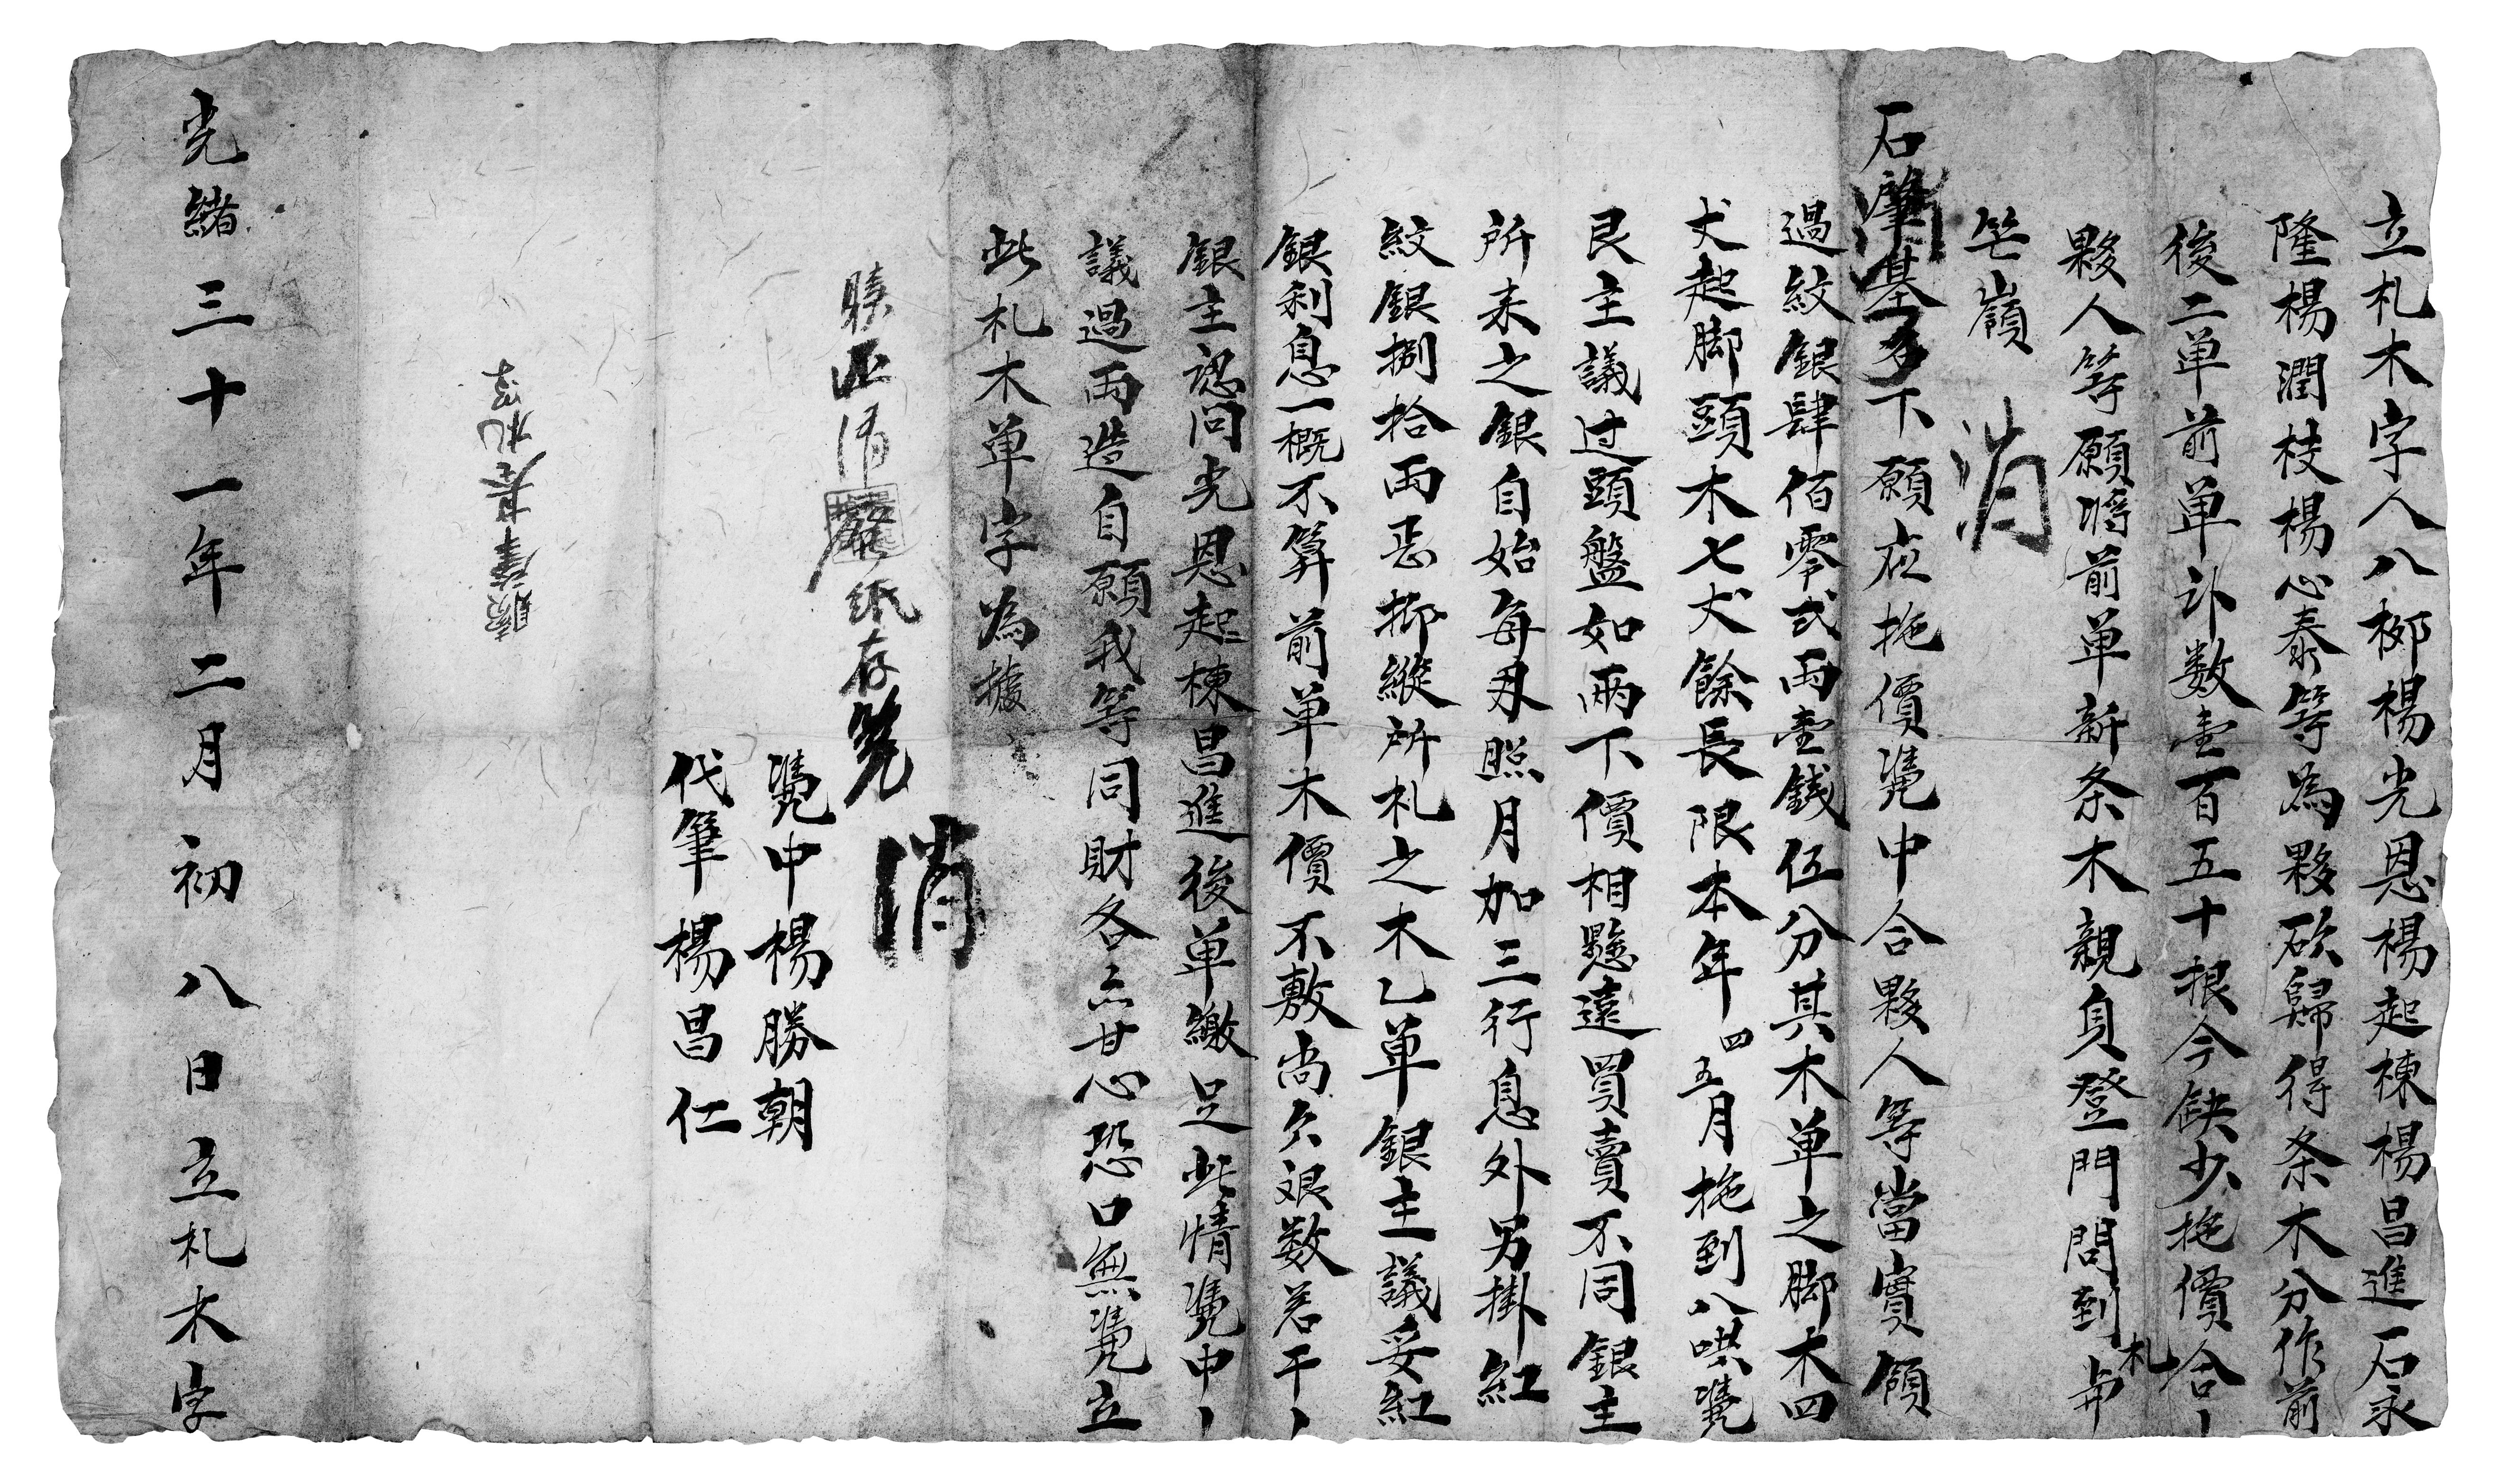 立札木字人八梛楊光恩楊起棟楊昌進石永
隆楊潤枝楊心泰等為夥砍歸得条木分作前
後二单前单訃数壹百五十根今缺少拖價合
夥人等願將前单新条木親自登門問到札与
笁嶺
消
石肇基名下願应拖價凴中合夥人等當實領
過紋銀肆佰零弍両壹錢伍分其木单之脚木四
丈起脚頭木七丈餘長限本年四五月拖到八哄凴
艮主議过頭盤如兩下價相懸遠買賣不同銀主
所来之銀自始每両照月加三行息外另掛紅
紋銀捌拾両恶抑縱所札之木乙单銀主議妥紅
銀利息一概不算前单木價不敷尚欠艰数若干
銀主認问光恩起棟昌進後单繳足此情凴中
議過両造自願我等同財各示甘心恐口無凴立
此札木单字為據
消
紙存凴
凴中楊勝朝
代筆楊昌仁
光緒三十一年二月初八日立札木字